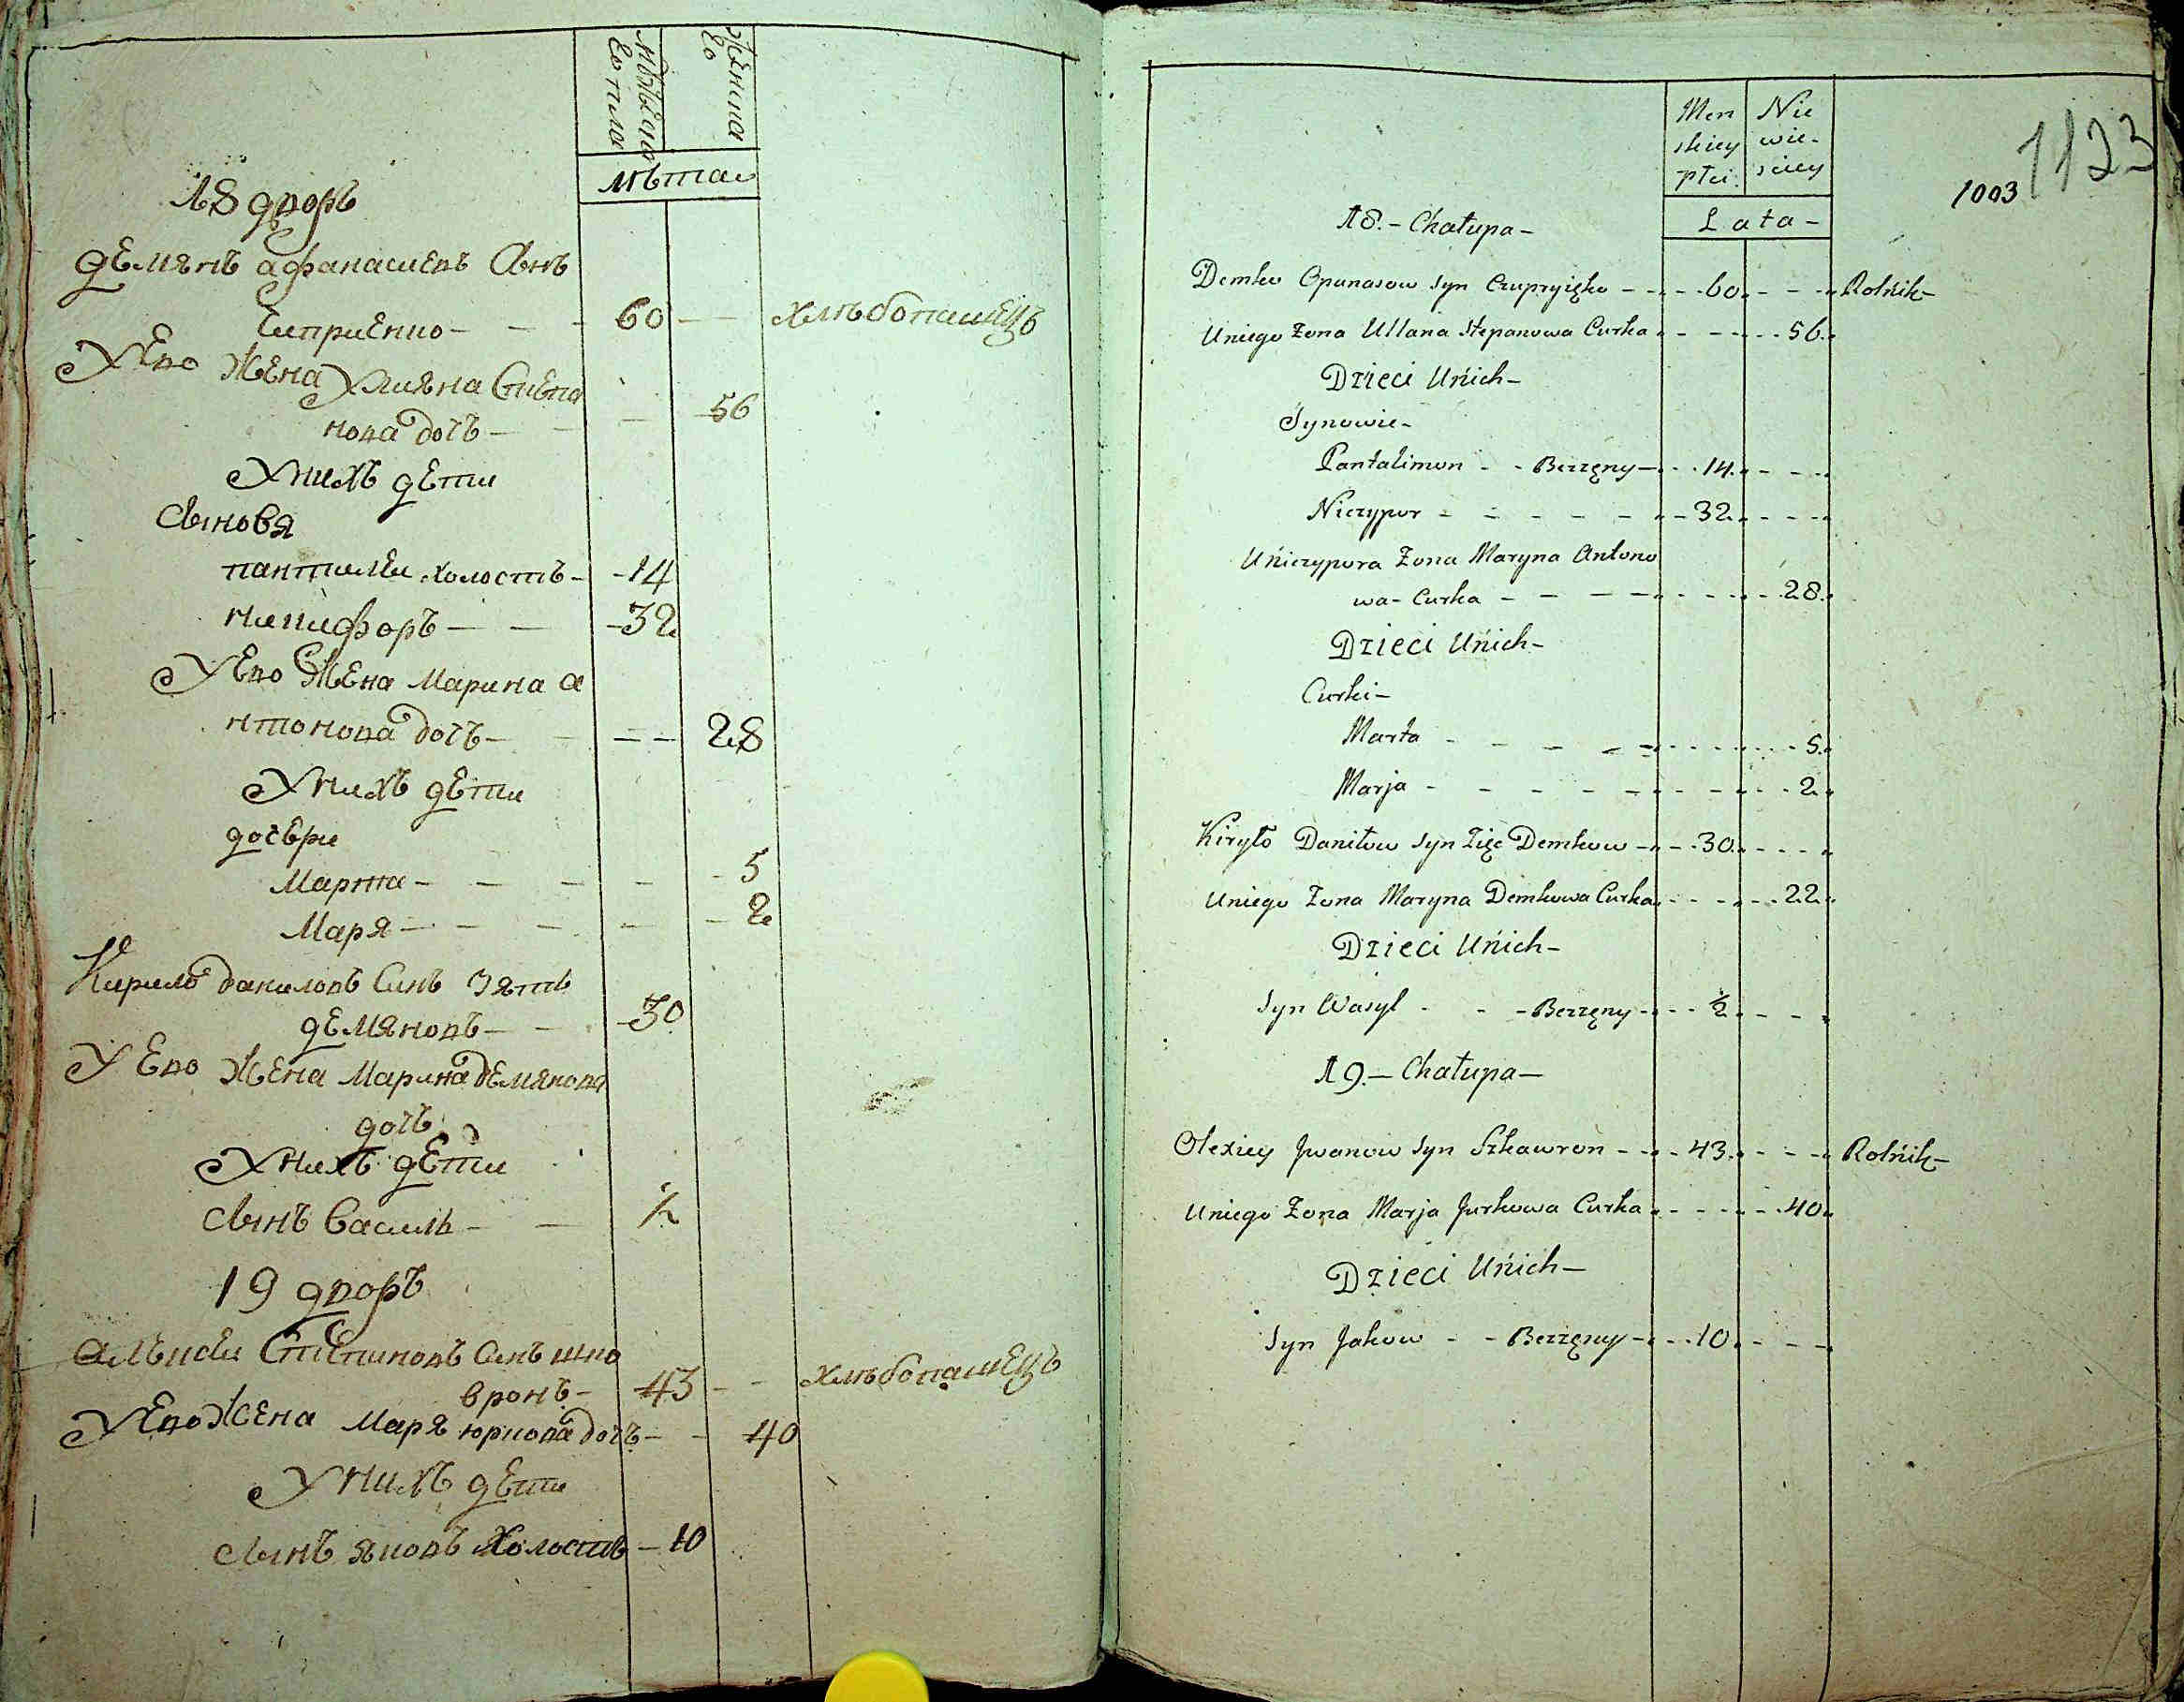 мужеска
го пола
женска
го
лѣта
18 дворъ
демянъ афанасиевъ Сынъ
Чиприенко — — — 60 — — хлѣбопашецъ
У Его Жена Улияна Степа
нова дочъ — — — 56
У нихъ дети
Сыновя
пантилеи холостъ — 14
никифоръ — — 32
У Его Жена Марина а
нтонова дочъ — — — — 28
У нихъ дети
дочери
Марта — — — — 5
Маря — — — — 2
Кирило даниловъ Синъ Зять
демяновъ — — 30
У Его Жена Марина демянова
дочъ
У нихъ дети
Сынъ Василь — — ½
19 дворъ
алѣксеи Сынъ шка
вронъ — 43 — — хлѣбопашецъ
У Его Жена Маря юркова дочъ — — 40
У нихъ дети
Сынъ яковъ Холостъ — 10
Men Nie
skiey wie-
płci. sciey
Lata —
1003 1123
18. — Chałupa —
Demko Opanasow Syn Czupryięko — — 60 — — Rolńik —
Uniego Zona Ullana Stepanowa Curka — — — 56
Dzieci Uńich —
Synowie —
Pantalimon — — Bezzęny — — 14 — —
Niczypor — — — — — 32 — —
Uńiczypora Zona Maryna Antono
wa — Curka — — — — — 28
Dzieci Uńich —
Curki —
Marta — — — — — 5
Marja — — — — — 2
Kiryło Daniłow Syn Zięc Demkow — — 30 — —
Uniego Zona Maryna Demkowa Curka — — 22
Dzieci Uńich —
Syn Wasyl — — Bezzęny — — ½ — —
19. — Chałupa —
Olexiey Jwanow Syn Szkawron — — 43 — — Rolńik —
Uniego Zona Marja Jurkowa Curka — — — 40
Dzieci Uńich —
Syn Jakow — — Bezzęny — — 10 — —